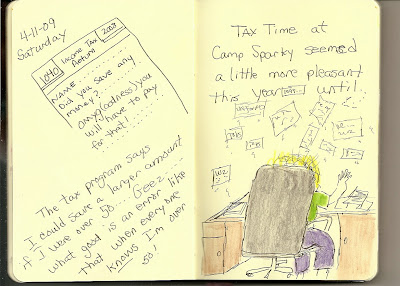 4-11-09
Saturday
1040
Income Tax
Return
2008
NAME
Did you save any
money?
OMy(goodness)! you
will have to pay
for that!
The tax program says
I could save a larger amount
if I were over 50.... Geez....
what good is an error like
that when everyone
knows I'm over
50!
TAX Time at
Camp Sparky seemed
a little more pleasant
this year until..